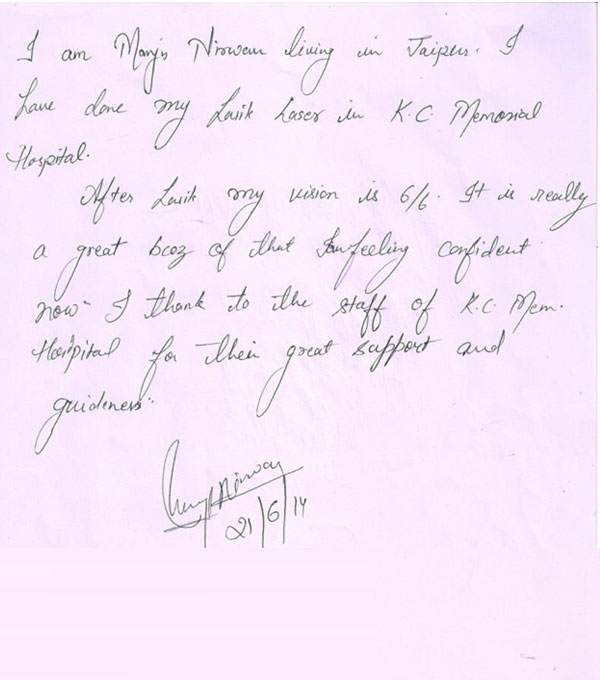 I am Manju Nirwan living in Jaipur. I
have done my Lasik Laser in K.C. Memorial
Hospital.
After Lasik my vision is 6/6. It is really
a great bcoz of that I'm feeling confident
now. I thank to the staff of K.C Mem.
Hospital for their great support and
guideness.
Nirwan
21/6/14